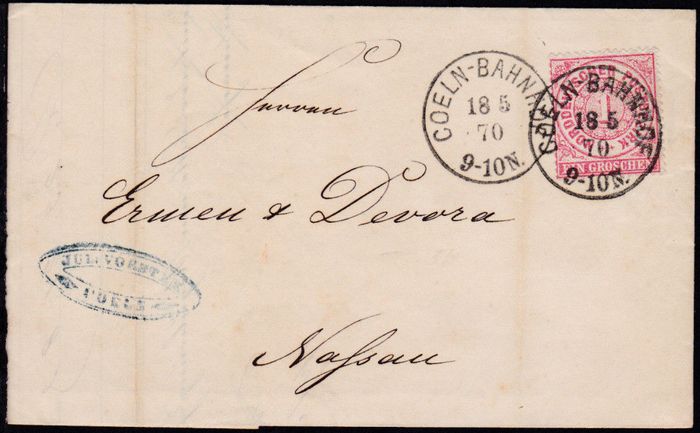 COELN-BAHNHOF
18 5
70
9-10N.
COELN-BAHNHOF
18 5
70
9-10N.
NORDDEUTSCHER POSTBEZIRK
1
EIN GROSCHEN
Herren
Ermen & Devora
JUL. VORSTER
COELN
Nassau